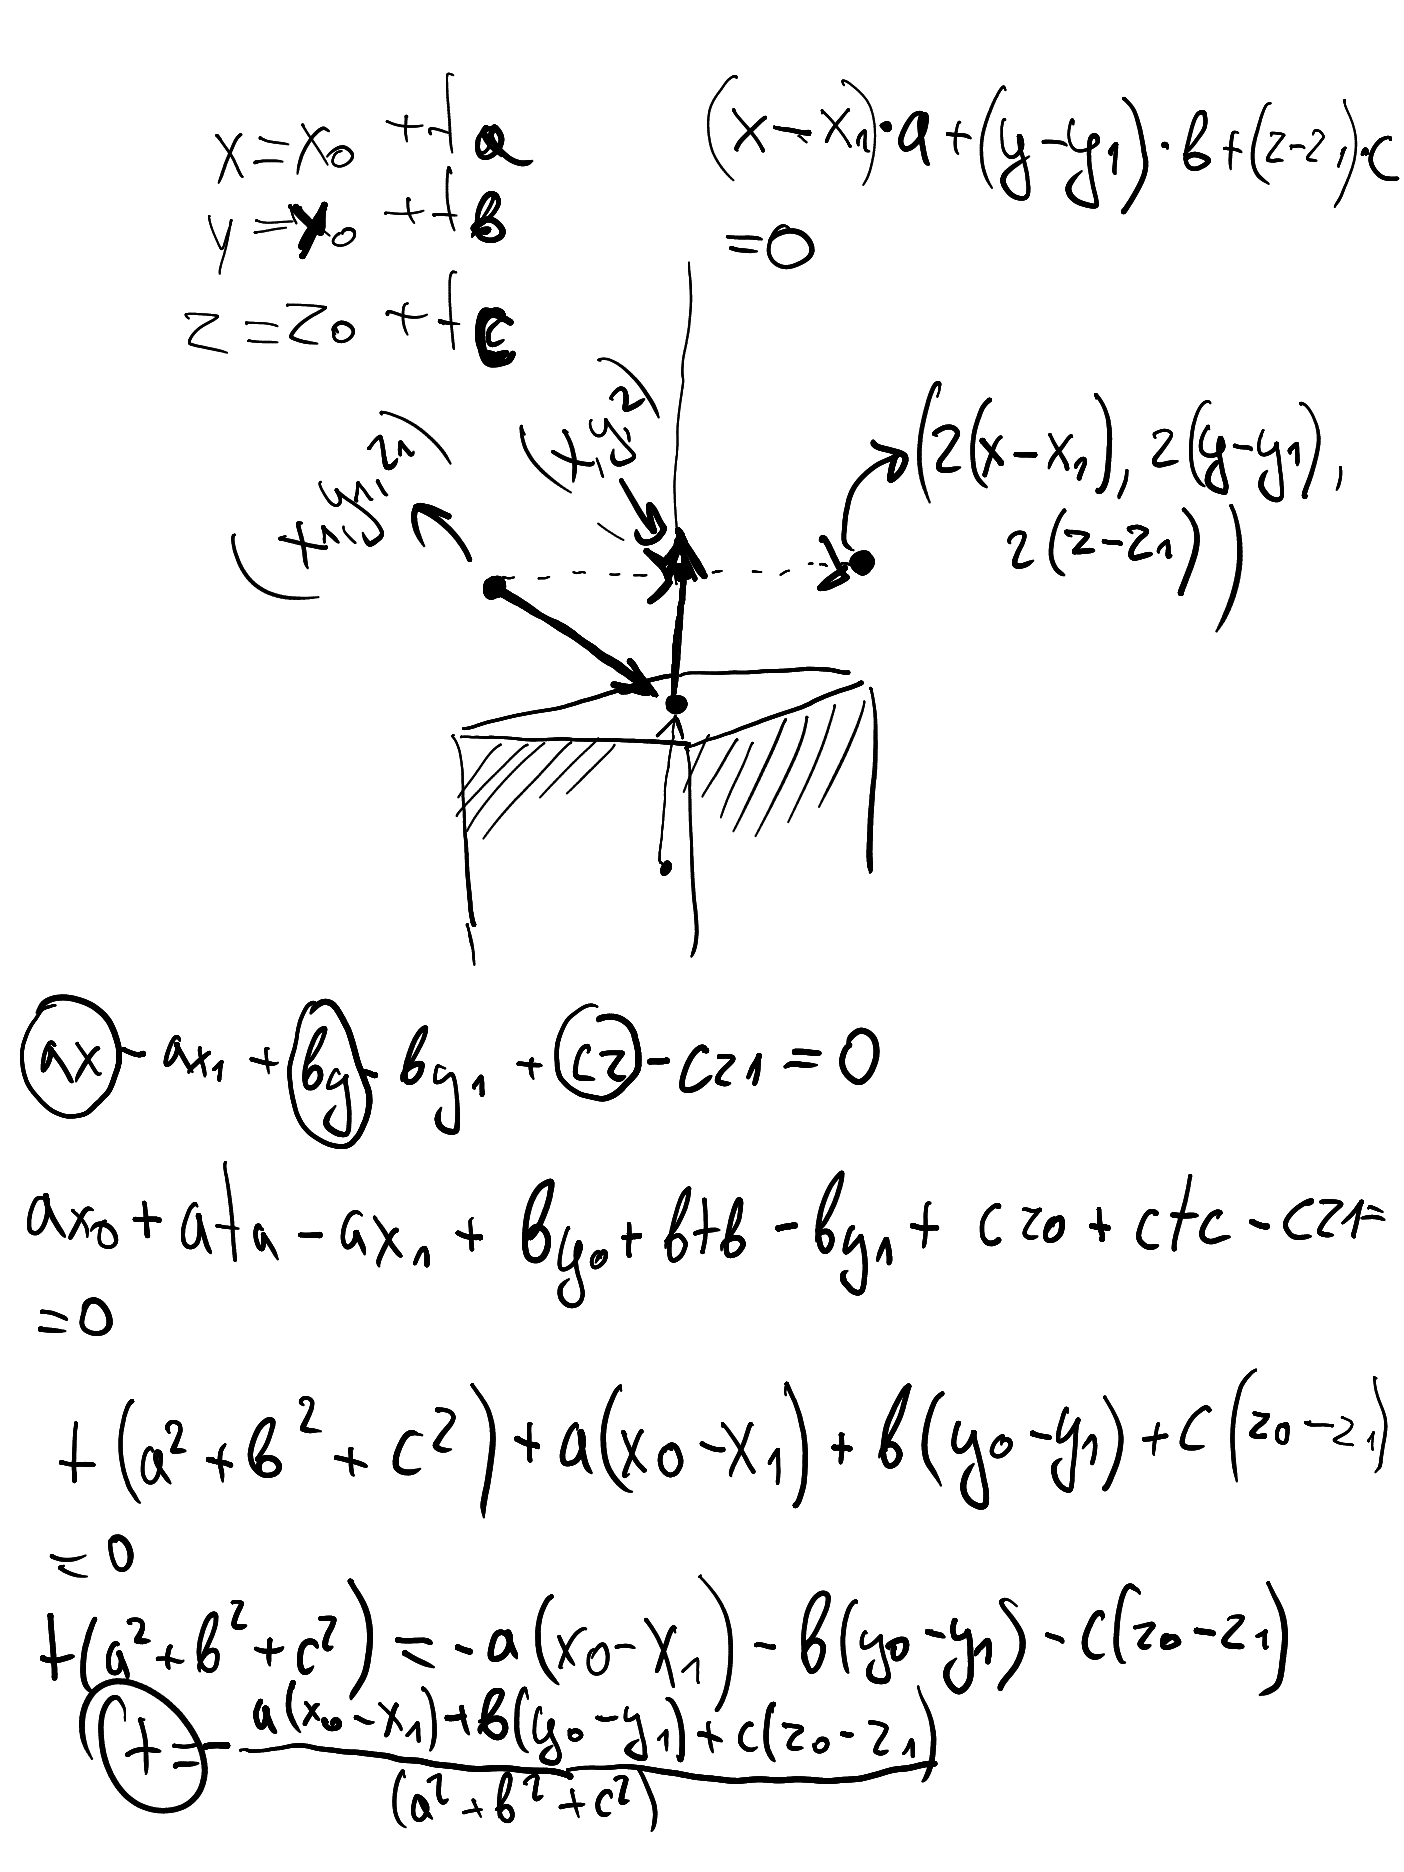 x = x₀ + ta
y = y₀ + tb
z = z₀ + tc
(x − x₁)·a + (y − y₁)·b + (z − z₁)·c
= 0
(x₁, y₁, z₁)
(x, y, z)
(2(x − x₁), 2(y − y₁),
2(z − z₁))
ax − ax₁ + by − by₁ + cz − cz₁ = 0
ax₀ + ata − ax₁ + by₀ + btb − by₁ + cz₀ + ctc − cz₁ =
= 0
t(a² + b² + c²) + a(x₀ − x₁) + b(y₀ − y₁) + c(z₀ − z₁)
= 0
t(a² + b² + c²) = −a(x₀ − x₁) − b(y₀ − y₁) − c(z₀ − z₁)
t = − a(x₀ − x₁) + b(y₀ − y₁) + c(z₀ − z₁)
(a² + b² + c²)